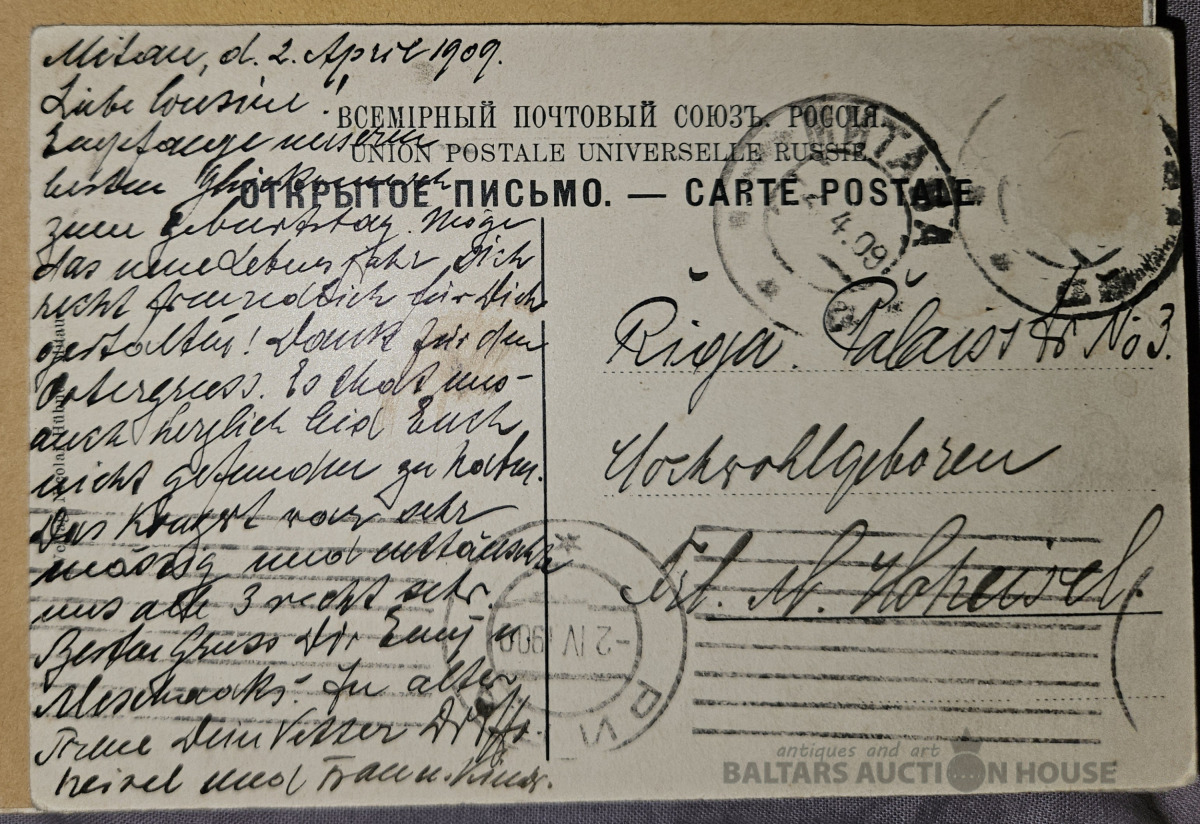 Mitau, d. 2. April 1909.
Liebe Cousine!
Empfange unseren
besten Glückwunsch
zum Geburtstag. Möge
das neue Lebensjahr Dich
recht freundlich für Dich
gestalten! Dank für den
Ostergruss. Es that uns
auch herzlich leid Euch
nicht gefunden zu haben.
Das Konzert war sehr
mässig und enttäuschte
uns alle 3 recht sehr.
Besten Gruss Dir Emmy u
In alter
Treue Dein Vetter
heisel und Frau u. Kinder.
ВСЕМІРНЫЙ ПОЧТОВЫЙ СОЮЗЪ. РОССІЯ.
UNION POSTALE UNIVERSELLE RUSSIE.
ОТКРЫТОЕ ПИСЬМО. — CARTE POSTALE
МИТАВА
4.09
Riga. Palaisstr No 3.
Hochwohlgeboren
Frl. M. Hoheisel.
-2 IV 1909
antiques and art
BALTARS AUCTION HOUSE